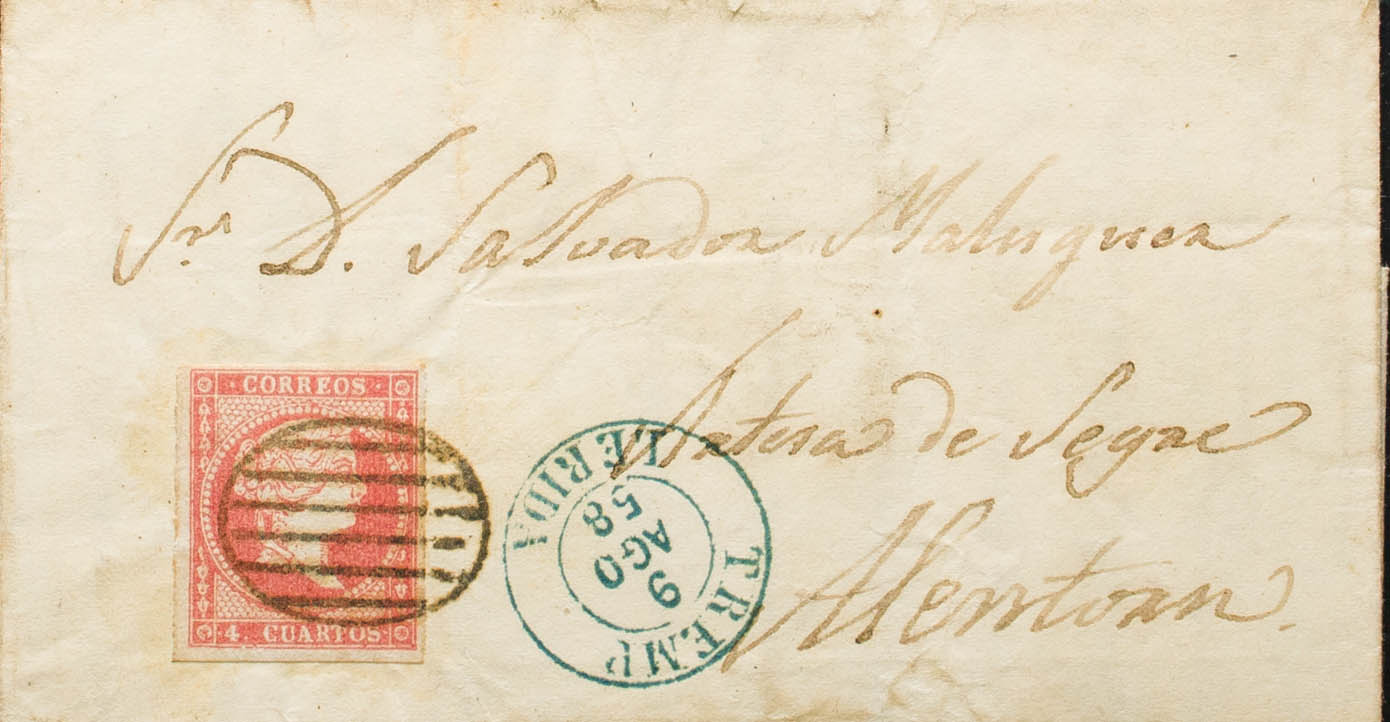 Sr. D. Salvador Maluquer
Artesa de Segre
Alentorn.
CORREOS
4 CUARTOS
TREMP
9
AGO
58
LERIDA